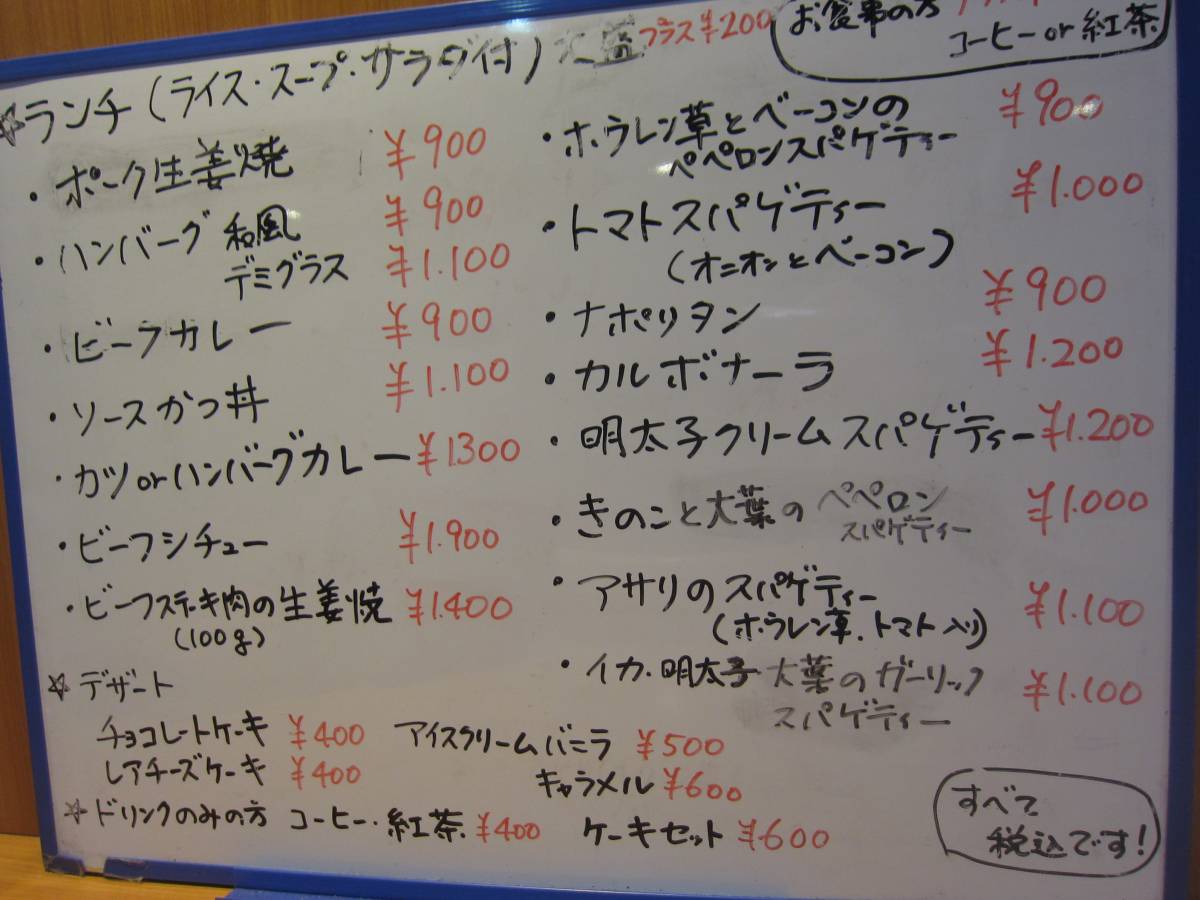 ☆ランチ(ライス・スープ・サラダ付) 大盛プラス¥200
お食事の方
コーヒーor紅茶
・ポーク生姜焼 ¥900
・ハンバーグ 和風 ¥900
デミグラス ¥1.100
・ビーフカレー ¥900
・ソースかつ丼 ¥1.100
・カツorハンバーグカレー ¥1300
・ビーフシチュー ¥1.900
・ビーフステーキ肉の生姜焼 ¥1.400
(100g)
・ホウレン草とベーコンの ¥900
ペペロンスパゲティー
・トマトスパゲティー ¥1.000
(オニオンとベーコン)
・ナポリタン ¥900
・カルボナーラ ¥1.200
・明太子クリームスパゲティー ¥1.200
・きのこと大葉のペペロン ¥1.000
スパゲティー
・アサリのスパゲティー ¥1.100
(ホウレン草.トマト入り)
・イカ.明太子 大葉のガーリック ¥1.100
スパゲティー
☆デザート
チョコレートケーキ ¥400 アイスクリームバニラ ¥500
レアチーズケーキ ¥400 キャラメル ¥600
☆ドリンクのみの方 コーヒー・紅茶 ¥400 ケーキセット ¥600
すべて
税込です!